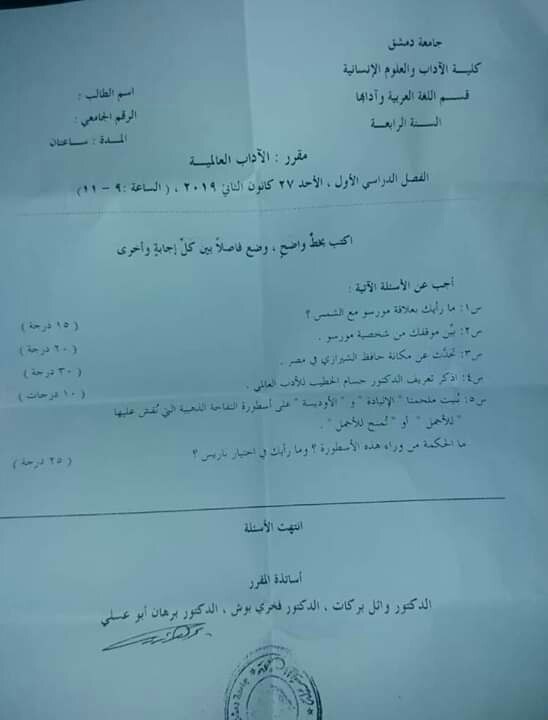 جامعة دمشق
كلية الآداب والعلوم الإنسانية
قسم اللغة العربية وآدابها
السنة الرابعة
اسم الطالب :
الرقم الجامعي :
المدة : ساعتان
مقرر : الآداب العالمية
الفصل الدراسي الأول ، الأحد ٢٧ كانون الثاني ٢٠١٩ ، ( الساعة : ٩ - ١١ )
اكتب بخطٍّ واضحٍ ، وضع فاصلاً بين كلّ إجابةٍ وأخرى
أجب عن الأسئلة الآتية :
س١: ما رأيك بعلاقة مورسو مع الشمس ؟ ( ١٥ درجة )
س٢: بيّن موقفك من شخصية مورسو . ( ٢٠ درجة )
س٣: تحدّث عن مكانة حافظ الشيرازي في مصر . ( ٣٠ درجة )
س٤: اذكر تعريف الدكتور حسام الخطيب للأدب العالمي . ( ١٠ درجات )
س٥: بُنيت ملحمتا " الإلياذة " و " الأوديسة " على أسطورة التفاحة الذهبية التي نُقش عليها
" للأجمل " أو " تُمنح للأجمل " .
ما الحكمة من وراء هذه الأسطورة ؟ وما رأيك في اختيار باريس ؟ ( ٢٥ درجة )
انتهت الأسئلة
أساتذة المقرر
الدكتور وائل بركات ، الدكتور فخري بوش ، الدكتور برهان أبو عسلي